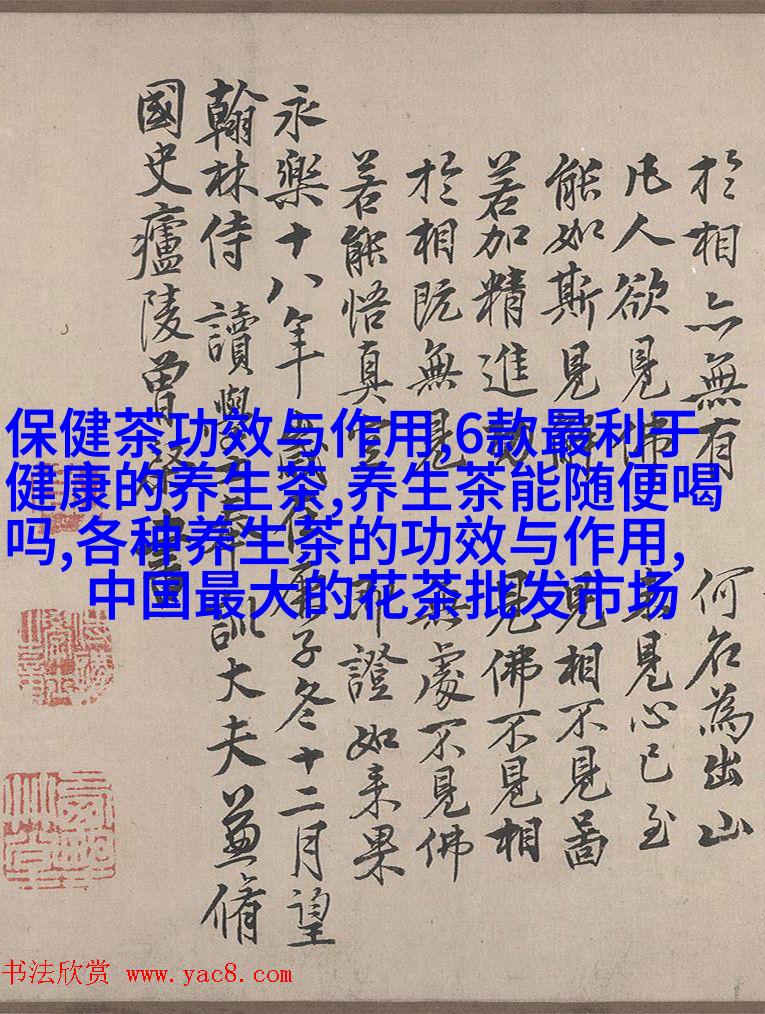 於相亦無有 何名為出山
凡人欲見佛 見心已至
能如斯見解 見相不見啚
若加精進 見佛不見相
於相既無見 無處不見佛
若能悟真空 即證如来果
永樂十八年歲在庚子冬十二月望
翰林侍讀學士奉訓大夫兼脩
國史廬陵曾棨書
保健茶功效与作用,6款最利于
健康的养生茶,养生茶能随便喝
吗,各种养生茶的功效与作用,
中国最大的花茶批发市场
书法欣赏 www.yac8.com